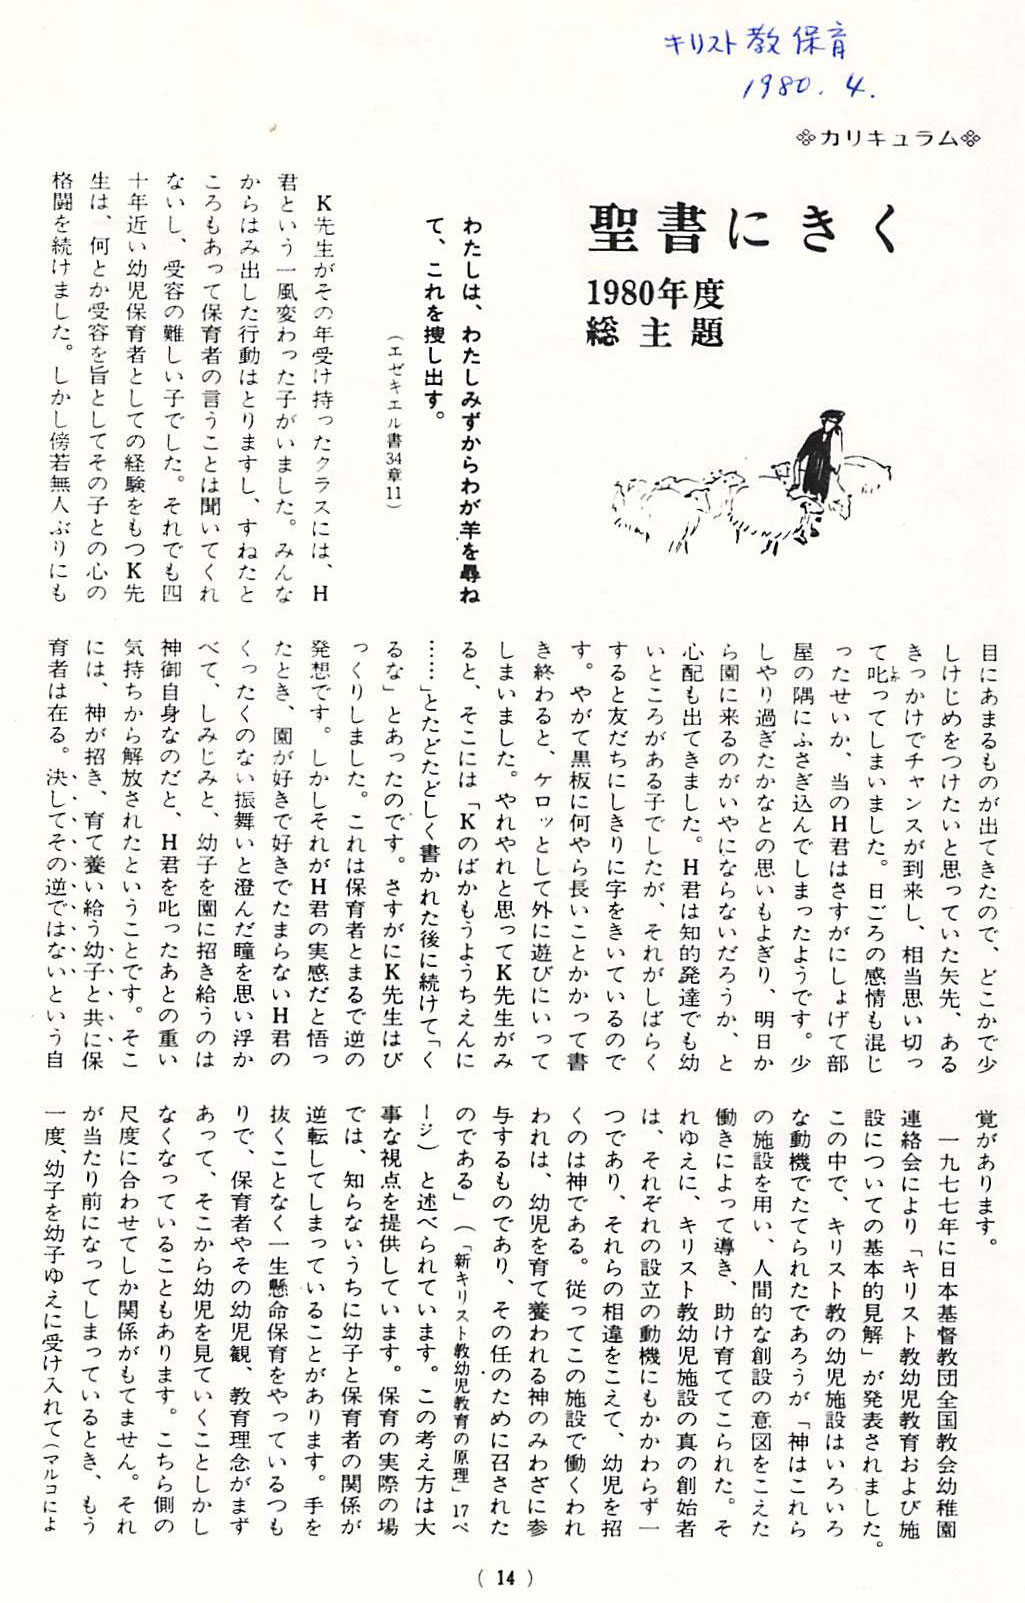 キリスト教保育
1980.4.
※カリキュラム※
聖書にきく
1980年度
総主題
わたしは、わたしみずからわが羊を尋ね
て、これを捜し出す。
(エゼキエル書34章11)
K先生がその年受け持ったクラスには、H
君という一風変わった子がいました。みんな
からはみ出した行動はとりますし、すねたと
ころもあって保育者の言うことは聞いてくれ
ないし、受容の難しい子でした。それでも四
十年近い幼児保育者としての経験をもつK先
生は、何とか受容を旨としてその子との心の
格闘を続けました。しかし傍若無人ぶりにも
目にあまるものが出てきたので、どこかで少
しけじめをつけたいと思っていた矢先、ある
きっかけでチャンスが到来し、相当思い切っ
て叱ってしまいました。日ごろの感情も混じ
ったせいか、当のH君はさすがにしょげて部
屋の隅にふさぎ込んでしまったようです。少
しやり過ぎたかなとの思いもよぎり、明日か
ら園に来るのがいやにならないだろうか、と
心配も出てきました。H君は知的発達でも幼
いところがある子でしたが、それがしばらく
すると友だちにしきりに字をきいているので
す。やがて黒板に何やら長いことかかって書
き終わると、ケロッとして外に遊びにいって
しまいました。やれやれと思ってK先生がみ
ると、そこには「Kのばかもうようちえんに
……」とたどたどしく書かれた後に続けて「く
るな」とあったのです。さすがにK先生はび
っくりしました。これは保育者とまるで逆の
発想です。しかしそれがH君の実感だと悟っ
たとき、園が好きで好きでたまらないH君の
くったくのない振舞いと澄んだ瞳を思い浮か
べて、しみじみと、幼子を園に招き給うのは
神御自身なのだと、H君を叱ったあとの重い
気持ちから解放されたということです。そこ
には、神が招き、育て養い給う幼子と共に保
育者は在る。決してその逆ではないという自
覚があります。
一九七七年に日本基督教団全国教会幼稚園
連絡会により「キリスト教幼児教育および施
設についての基本的見解」が発表されました。
この中で、キリスト教の幼児施設はいろいろ
な動機でたてられたであろうが「神はこれら
の施設を用い、人間的な創設の意図をこえた
働きによって導き、助け育ててこられた。そ
れゆえに、キリスト教幼児施設の真の創始者
は、それぞれの設立の動機にもかかわらず一
つであり、それらの相違をこえて、幼児を招
くのは神である。従ってこの施設で働くわれ
われは、幼児を育て養われる神のみわざに参
与するものであり、その任のために召された
のである」(「新キリスト教幼児教育の原理」17ペ
ージ)と述べられています。この考え方は大
事な視点を提供しています。保育の実際の場
では、知らないうちに幼子と保育者の関係が
逆転してしまっていることがあります。手を
抜くことなく一生懸命保育をやっているつも
りで、保育者やその幼児観、教育理念がまず
あって、そこから幼児を見ていくことしかし
なくなっていることもあります。こちら側の
尺度に合わせてしか関係がもてません。それ
が当たり前になってしまっているとき、もう
一度、幼子を幼子ゆえに受け入れて(マルコによ
(14)